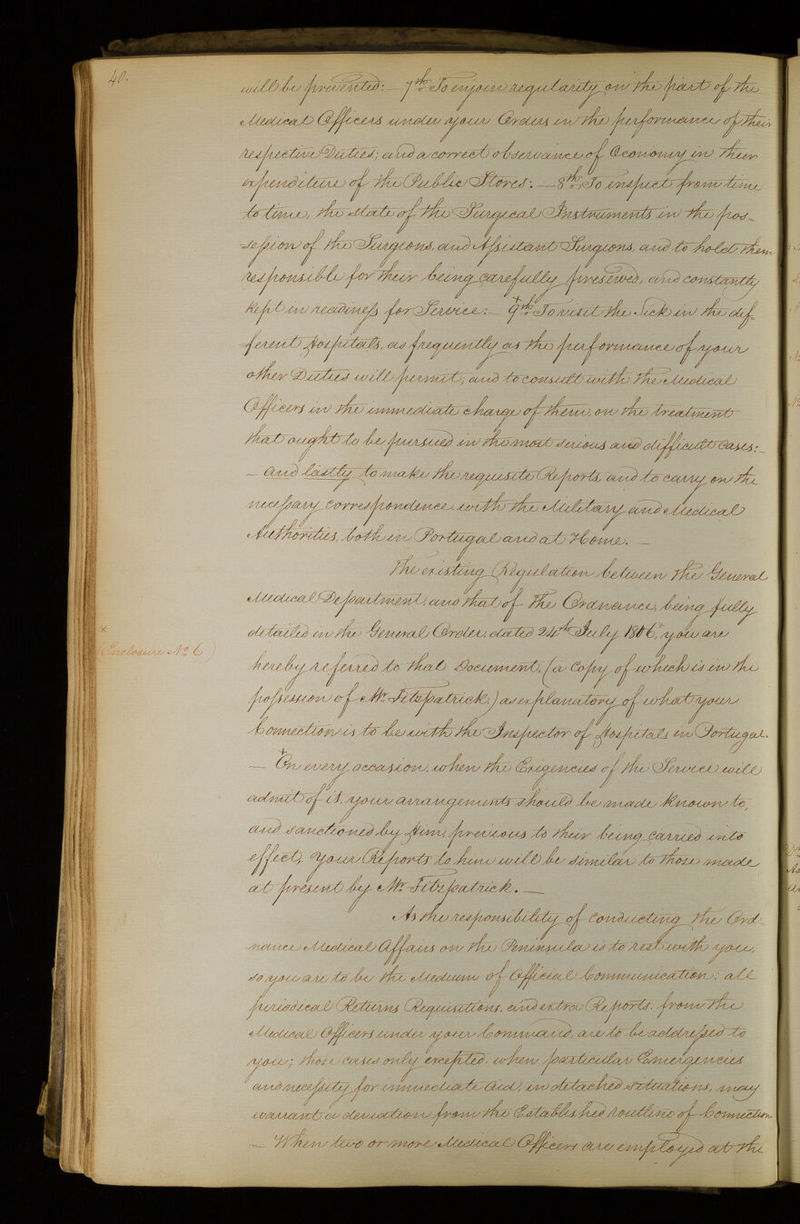 40.
will be prevented: — 7th To enjoin regularity on the part of the
Medical Officers under your Orders in the performance of their
respective Duties; and a correct observance of Oeconomy in their
expenditure of the Public Stores: — 8th To inspect from time
to time, the state of the Surgical Instruments in the pos-
session of the Surgeons and Assistant Surgeons, and to hold them
responsible for their being carefully preserved, and constantly
kept in readiness for Service: — 9th To visit the Sick in the dif-
ferent Hospitals, as frequently as the performance of your
other Duties will permit, and to consult with the Medical
Officers in the immediate charge of them, on the treatment
that ought to be pursued in the most serious and difficult Cases: —
— And lastly to make the requisite Reports, and to carry on the
necessary correspondence with the Military and Medical
Authorities, both in Portugal and at Home. —
The existing Regulation between the General
Medical Department, and that of the Ordnance, being fully
detailed in the General Order, dated 24th July 1806, you are
x
Enclosure No 6)
hereby referred to that Document, (a Copy of which is in the
possession of Mr Fitzpatrick,) as explanatory of what your
Connection is to be with the Inspector of Hospitals in Portugal.
— On every occasion, when the Exigencies of the Service will
admit of it, your arrangements should be made known to,
and sanctioned by Him, previous to their being carried into
effect; Your Reports to him will be similar to those made
at present by Mr Fitzpatrick. —
As the responsibility of conducting the Ord-
nance Medical Affairs on the Peninsula is to rest with you,
so you are to be the Medium of Official Communication; all
periodical Returns Requisitions, and extra Reports, from the
Medical Officers under your Command, are to be addressed to
you; those cases only excepted, when particular Emergencies
and necessity for immediate Aid, in detached situations, may
warrant a deviation from the Established routline of Connection
— When two or more Medical Officers are employed at the